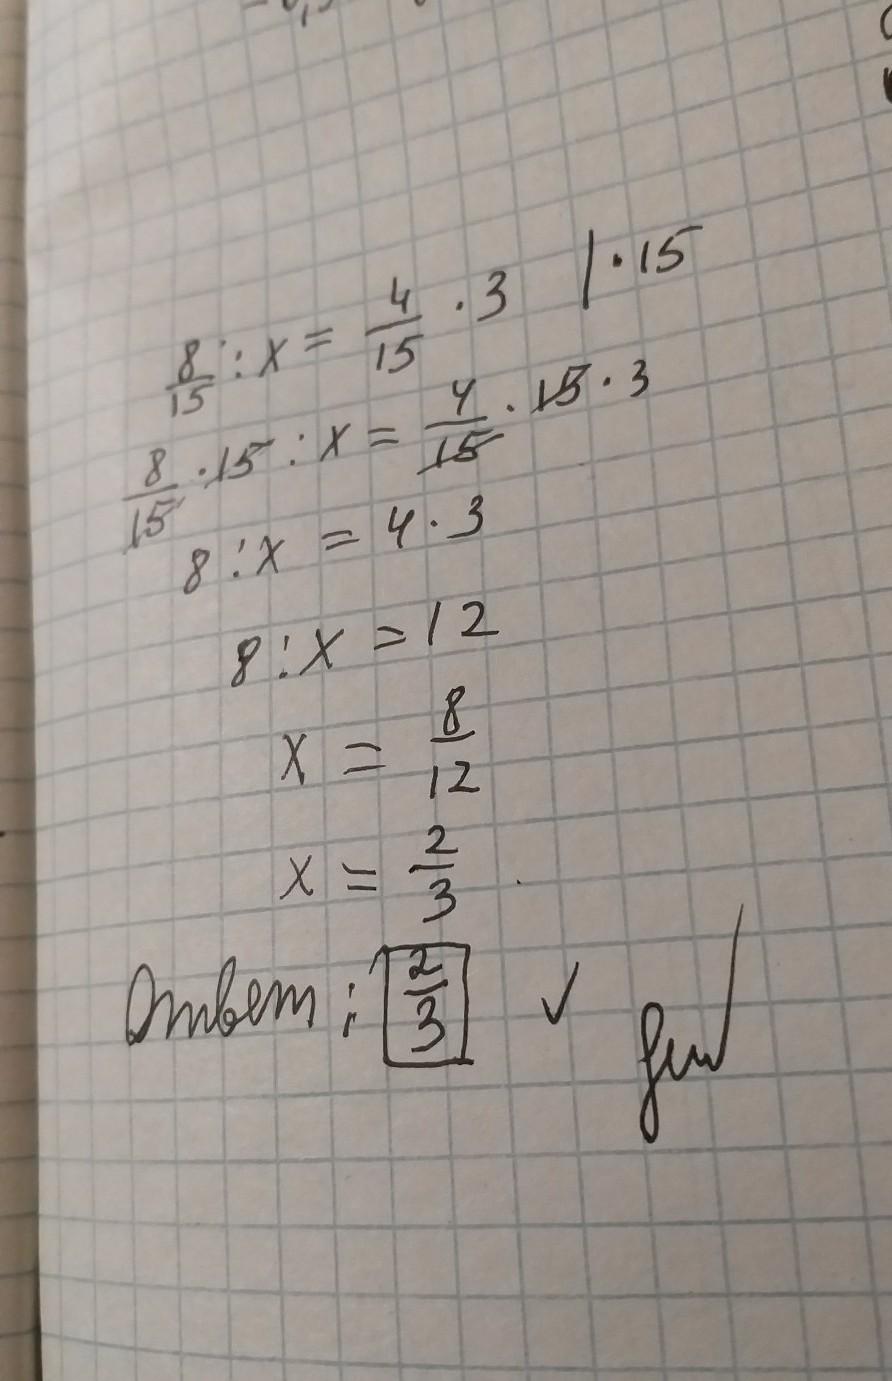 8/15 : x = 4/15 · 3 | · 15
8/15 · 15 : x = 4/15 · 15 · 3
8 : x = 4 · 3
8 : x = 12
x = 8/12
x = 2/3
Ответ : 2/3 ✓